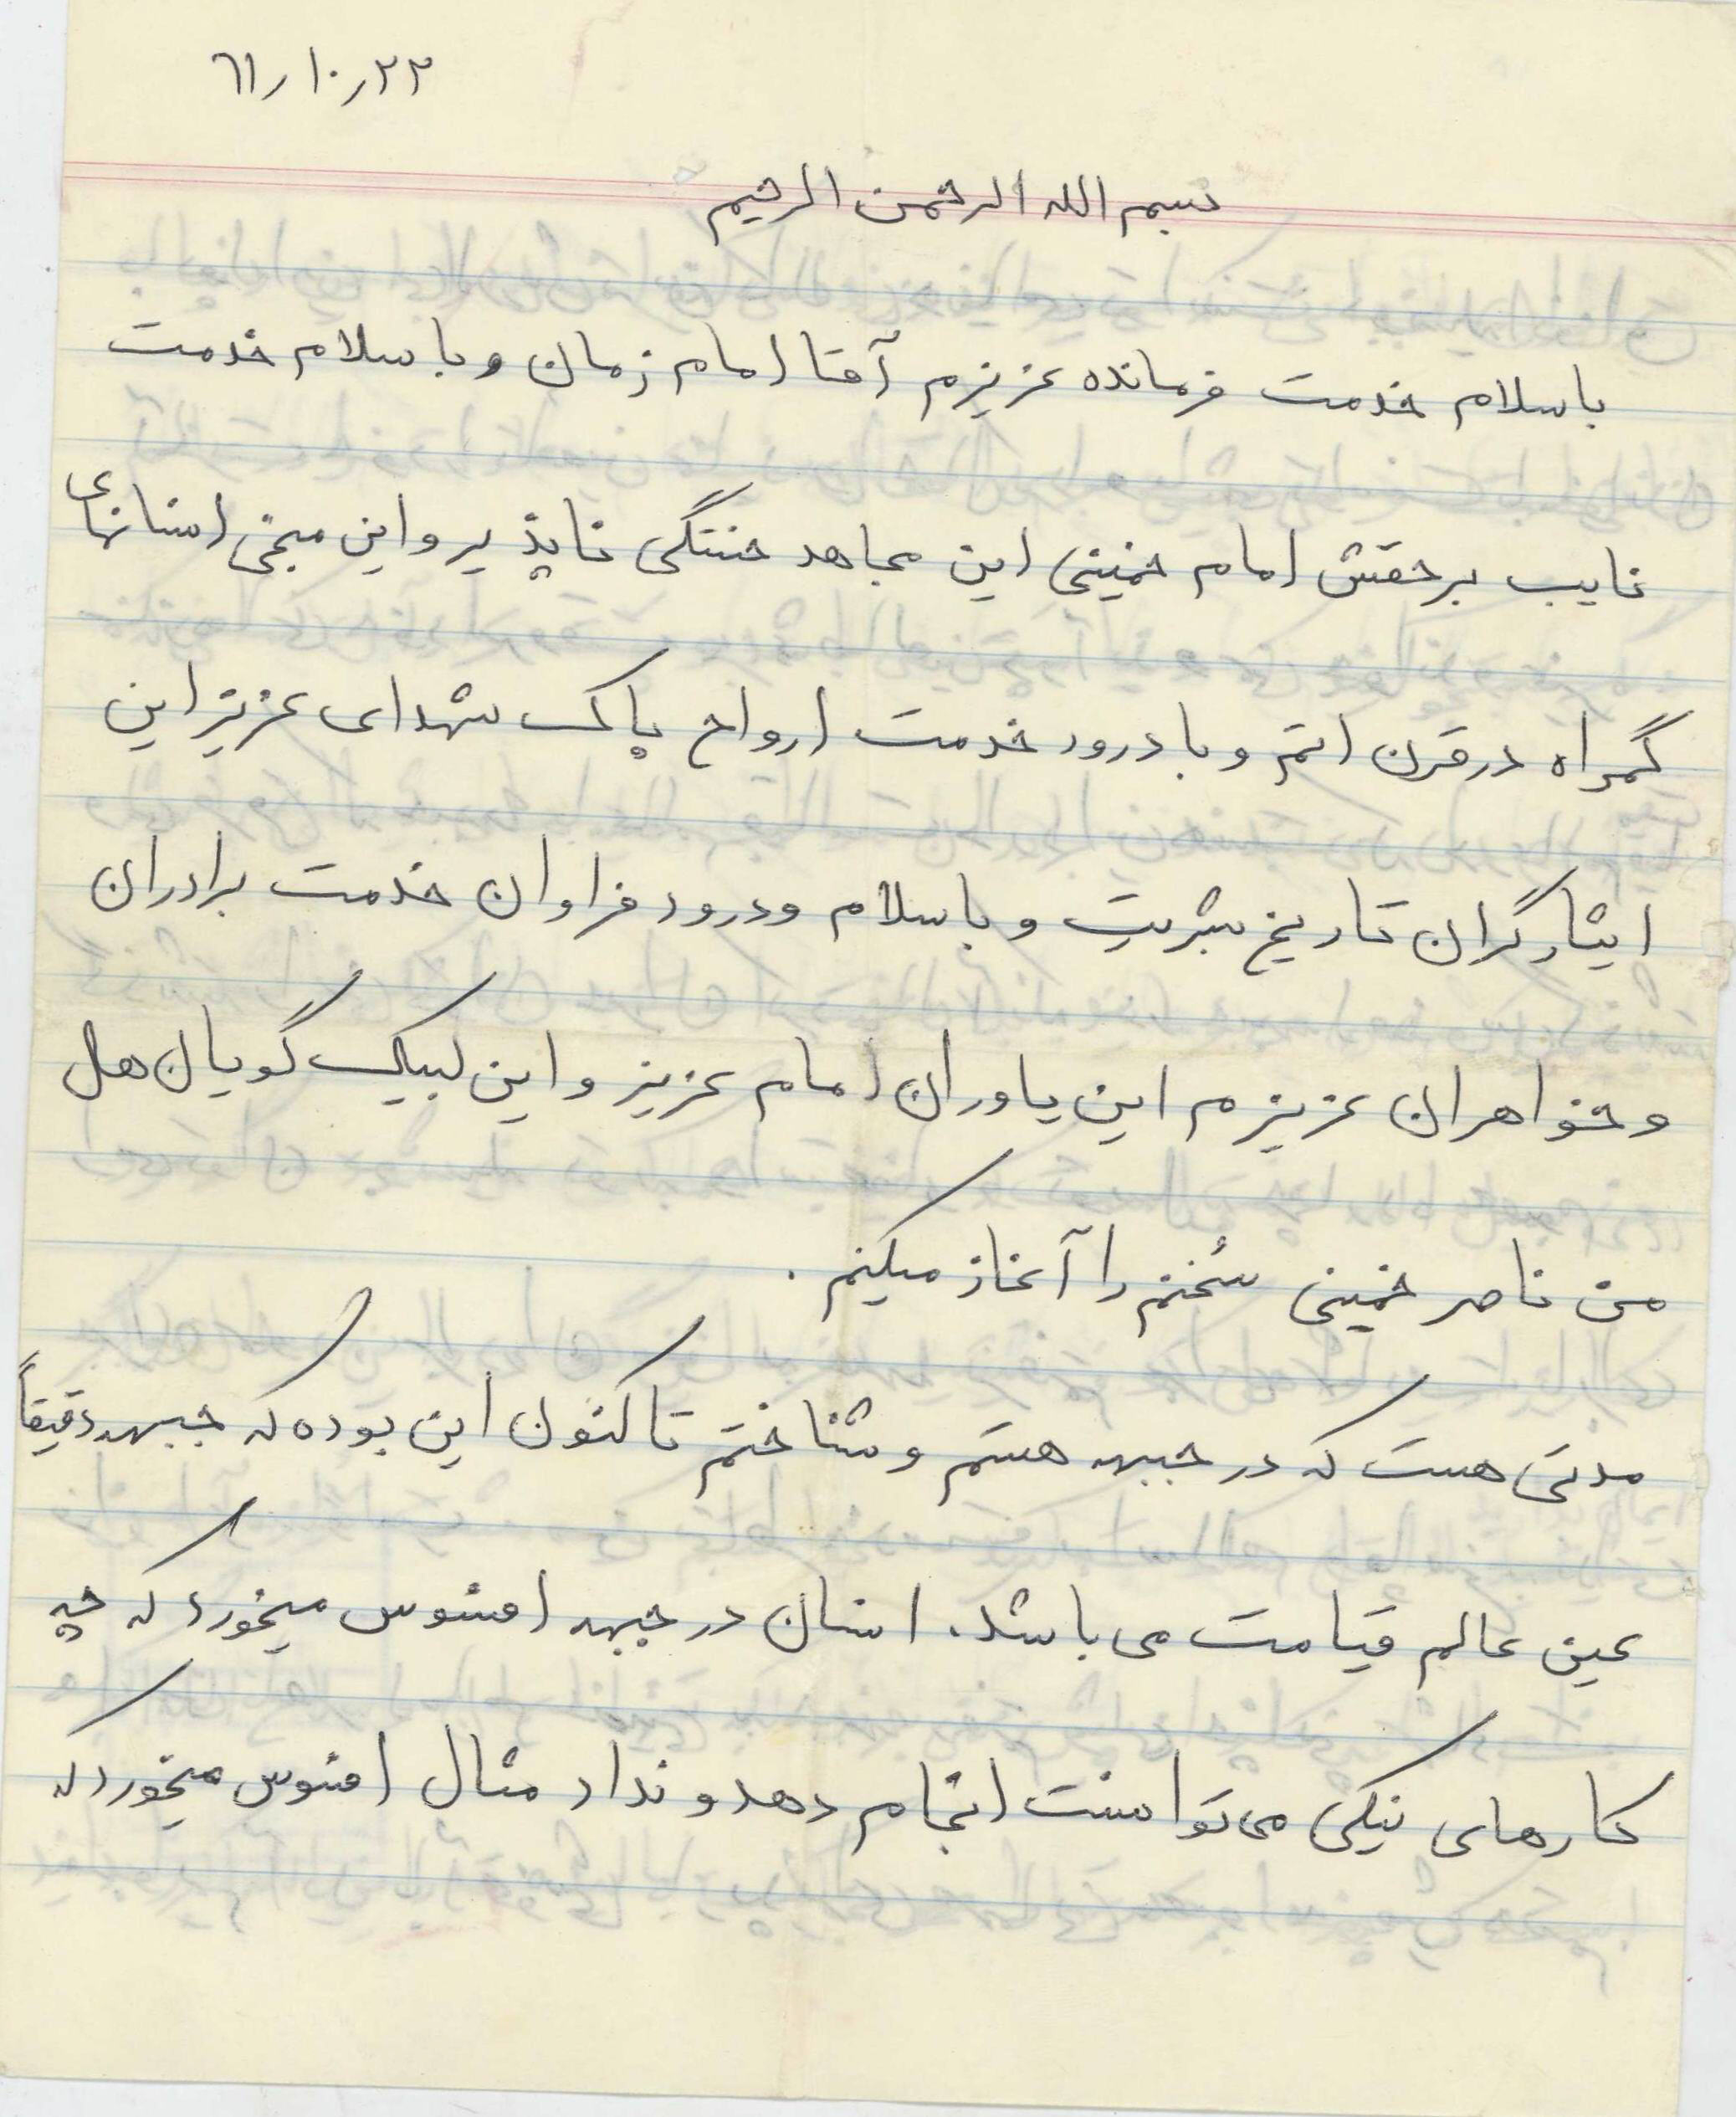 ۶۱/۱۰/۲۲
بسم الله الرحمن الرحیم
با سلام خدمت فرمانده عزیزم آقا امام زمان و با سلام خدمت
نایب برحقش امام خمینی این مجاهد خستگی ناپذیر و این منجی انسانهای
گمراه در قرن اتم و با درود خدمت ارواح پاک شهدای عزیز این
ایثارگران تاریخ بشریت و با سلام و درود فراوان خدمت برادران
و خواهران عزیزم این یاوران امام عزیز و این لبیک گویان هل
من ناصر خمینی سُخنم را آغاز میکنم.
مدتی هست که در جبهه هستم و شناختم تا کنون این بوده که جبهه دقیقاً
عین عالم قیامت می باشد. انسان در جبهه افسوس میخورد که چه
کارهای نیکی می توانست انجام دهد و نداد مثال افسوس میخورد که